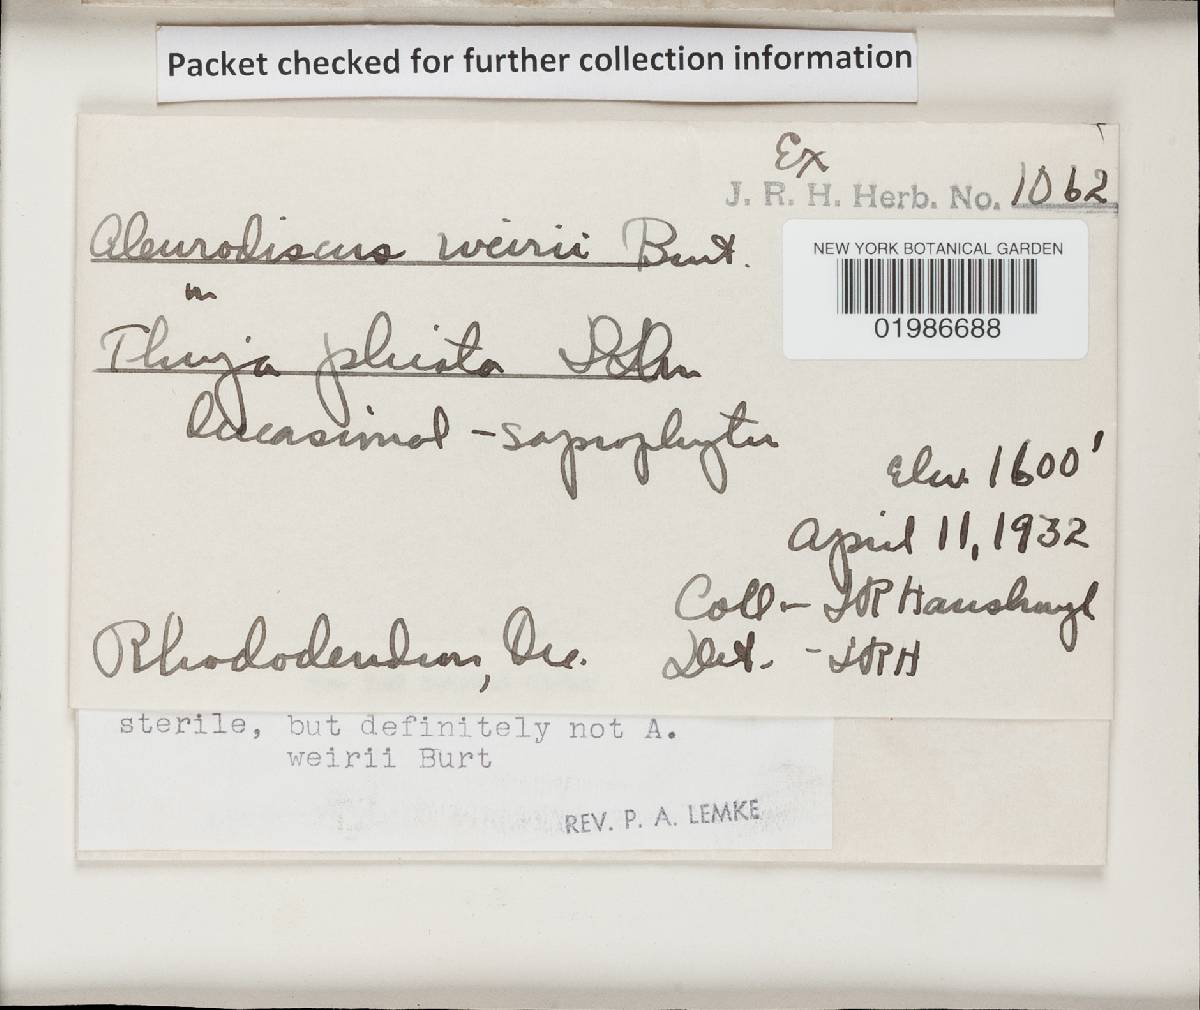 Packet checked for further collection information
Ex
J. R. H. Herb. No. 1062
Aleurodiscus weirii Burt.
NEW YORK BOTANICAL GARDEN
01986688
on
Thuja plicata D. Don
Occasional - saprophytic
Elev. 1600'
April 11, 1932
Coll - JR Hansbrough
Rhododendron, Ore.
Det. - JRH
sterile, but definitely not A.
weirii Burt
REV. P. A. LEMKE